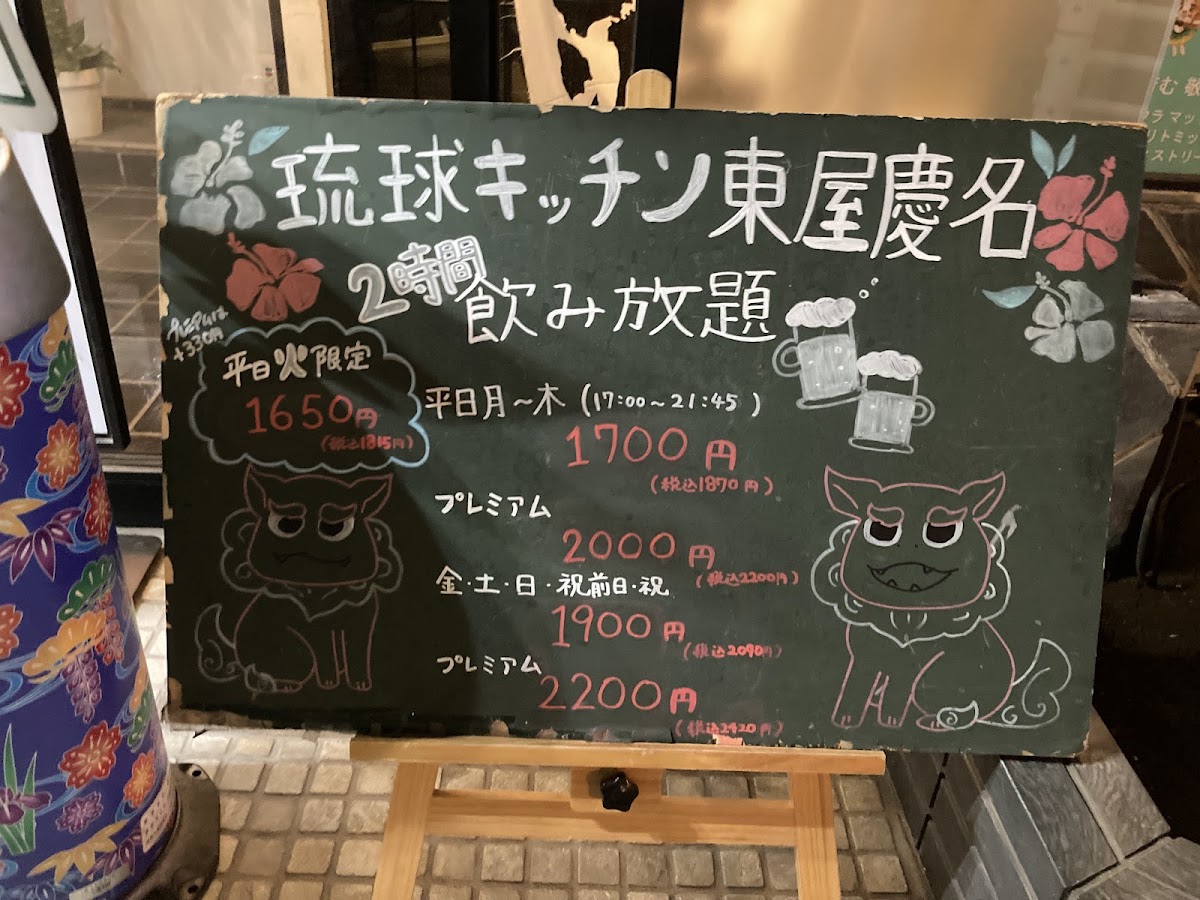 琉球キッチン東屋慶名
2時間
飲み放題
プレミアムは
+330円
平日火限定
1650円
(税込1815円)
平日月~木 (17:00~21:45)
1700円
(税込1870円)
プレミアム
2000円
(税込2200円)
金・土・日・祝前日・祝
1900円
(税込2090円)
プレミアム
2200円
(税込2420円)